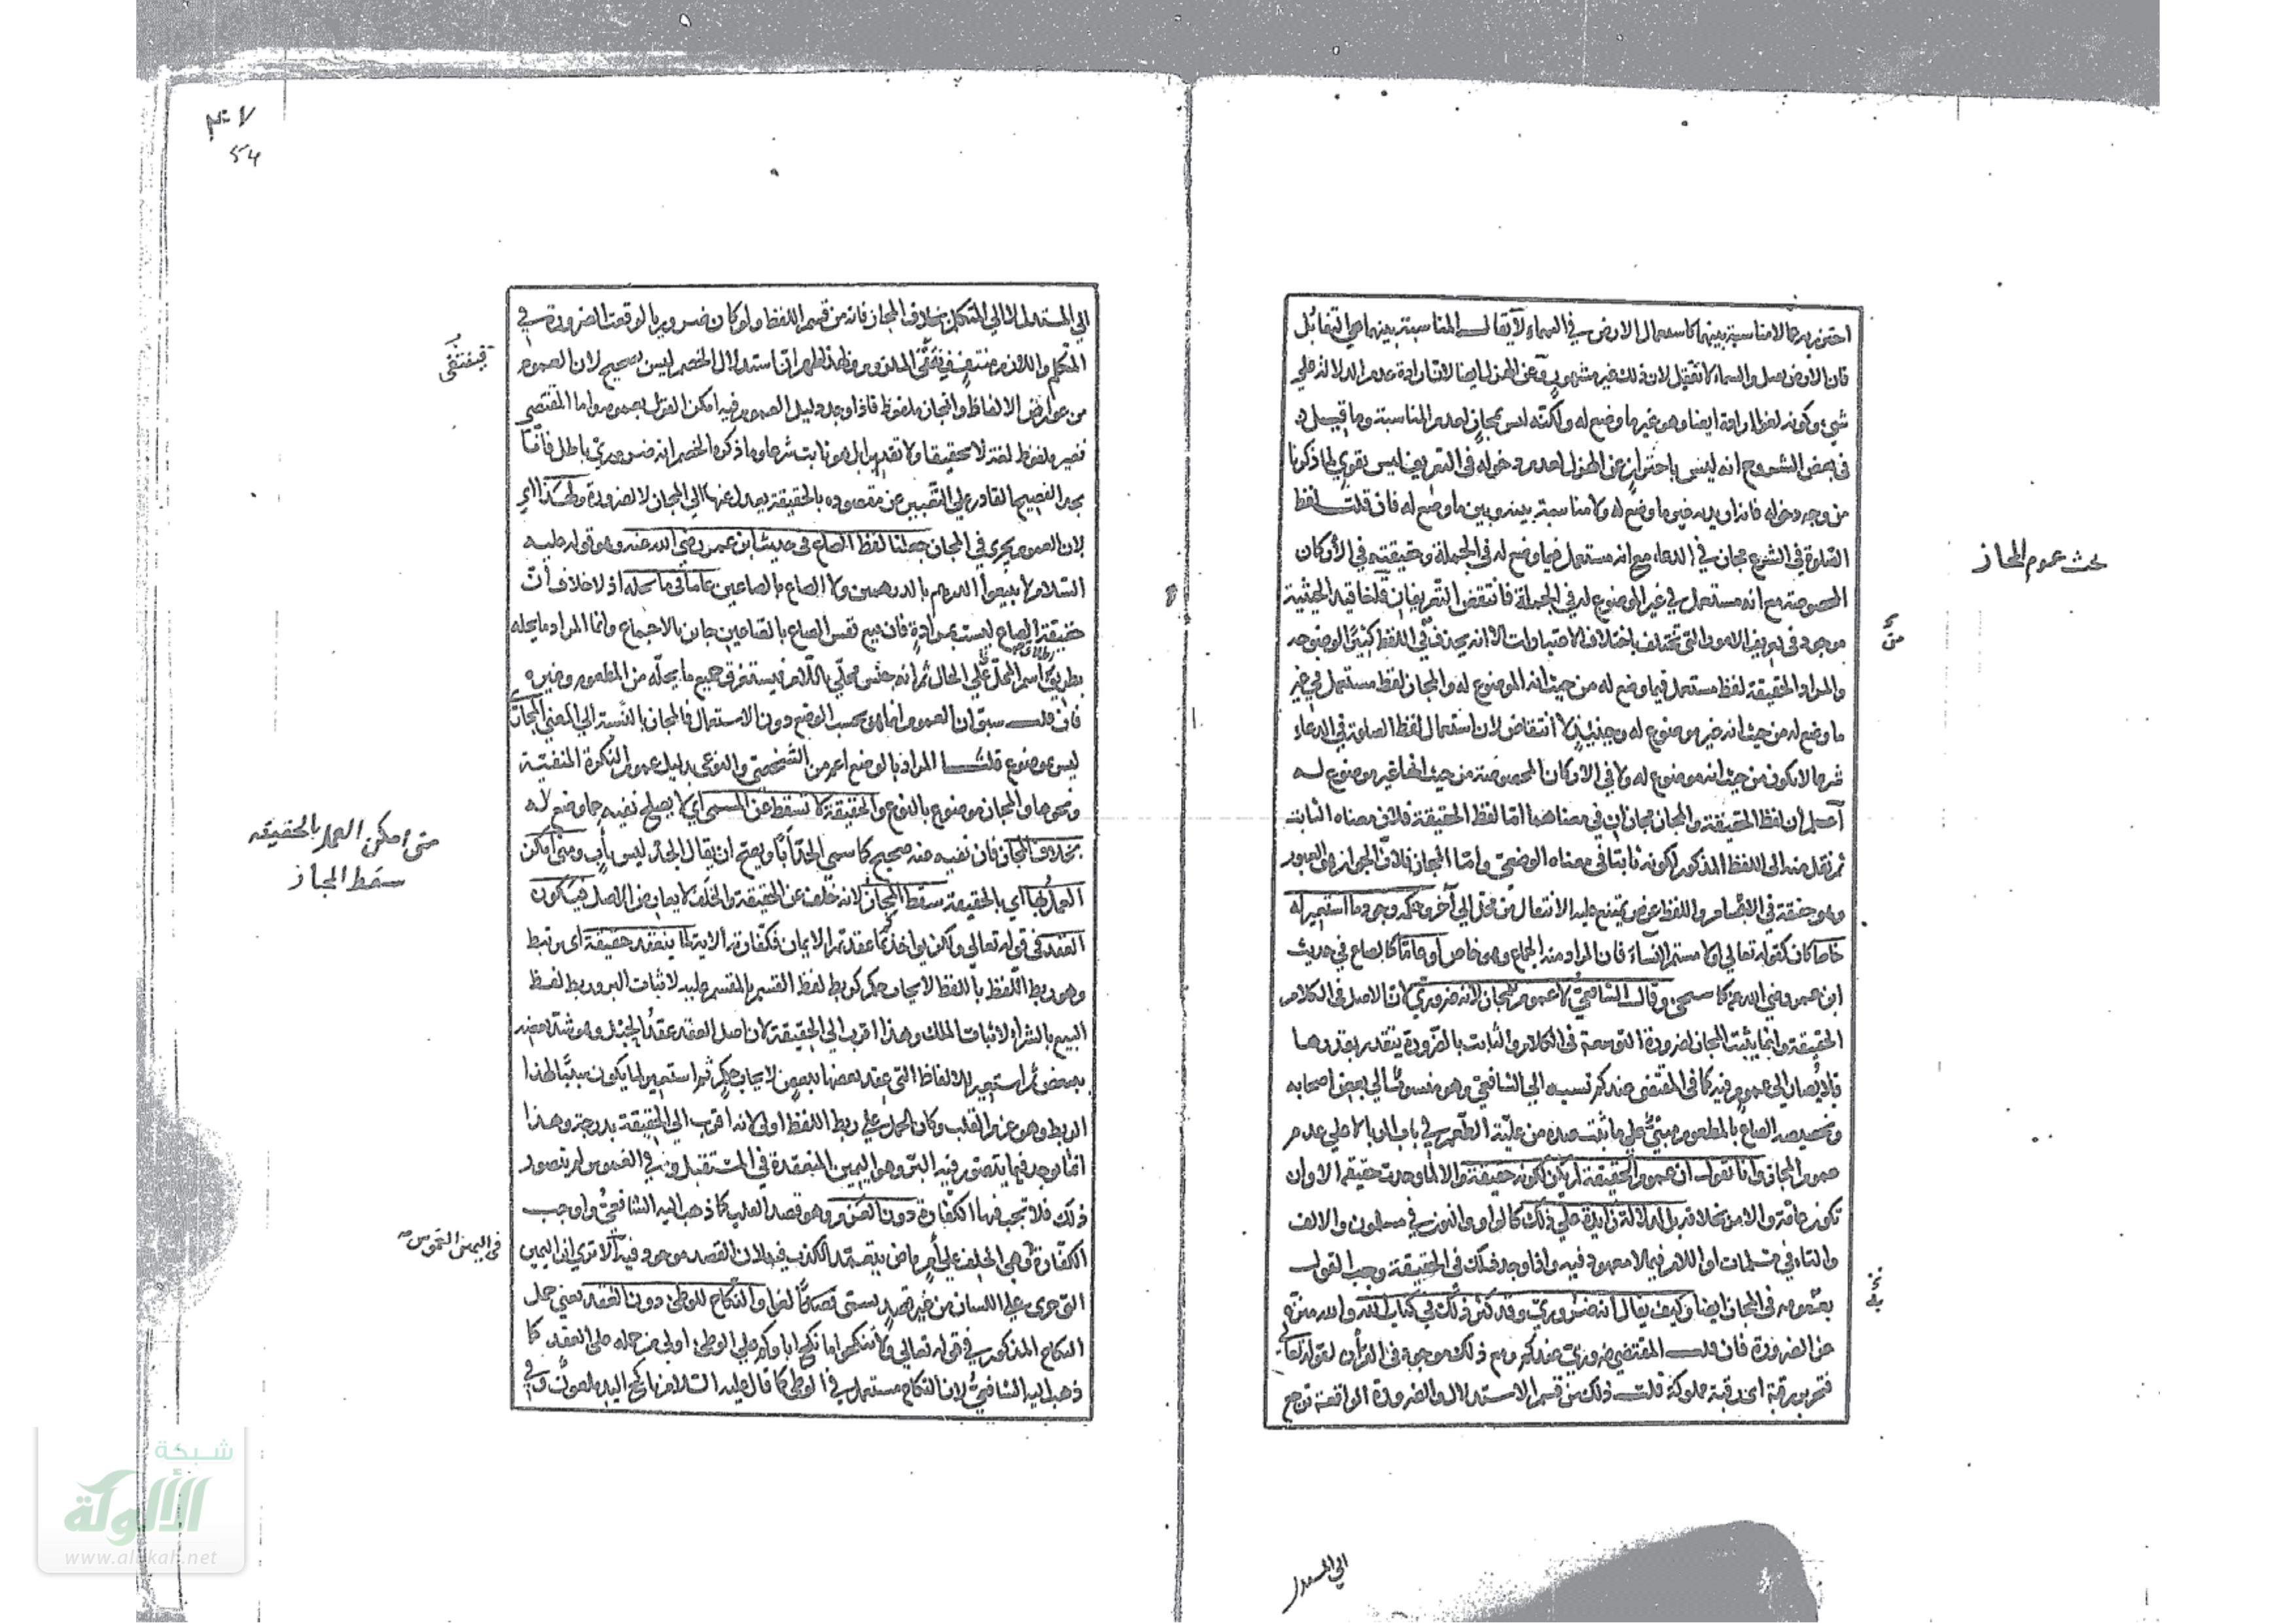 احترز به عما لا مناسبة بينهما كاستعمال الارض في السماء لا يقال المناسبة بينهما هي التقابل
فان الارض سفل والسماء لان ذلك غير مشهور وعن الهزل ايضا لان ارادة عدم الدلالة علي
شيء وكونه لفظا ارادة ايضا وهو غير ما وضع له ولكنه ليس بمجاز لعدم المناسبة وما قيل
في بعض الشروح انه ليس باحتراز عن الهزل لعدم دخوله في التعريف ليس بقوي لما ذكرنا
من وجه دخوله فانه اريد به غير ما وضع له ولا مناسبة بينه وبين ما وضع له فان قلت لفظ
الصلوة في الشرع مجاز في الدعاء مع انه مستعمل فيما وضع له في الجملة وحقيقة في الاركان
المخصوصة مع انه مستعمل في غير الموضوع له في الجملة فانتقض التعريفان قلنا قيد الحيثية
موجود في تعريف الامور التي تختلف باختلاف الاعتبارات الا انه يحذف في اللفظ كثيرا لوضوحه
والمراد الحقيقة لفظ مستعمل فيما وضع له من حيث انه الموضوع له والمجاز لفظ مستعمل في غير
ما وضع له من حيث انه غير موضوع له وحينئذ لا انتقاض لان استعمال لفظ الصلوة في الدعاء
شرعا لا يكون من حيث انه موضوع له ولا في الاركان المخصوصة من حيث انها غير موضوع له
اعلم ان لفظ الحقيقة والمجاز مجازان في معناهما اما لفظ الحقيقة فلان معناه الثابت
ثم نقل منه الى اللفظ المذكور لكونه ثابتا في معناه الوضعي واما المجاز فلان الجواز هو العبور
وهو حقيقة في الاجسام واللفظ عرض يمتنع عليه الانتقال من محل الي آخر وحكمه وجود ما استعير له
خاصا كان كقوله تعالي او لا مستم النساء فان المراد منه الجماع وهو خاص او عاما كالصاع في حديث
ابن عمر رضي الله عنه كما سيجيء وقال الشافعي لا عموم للمجاز لانه ضروري لان الاصل في الكلام
الحقيقة وانما يثبت المجاز لضرورة التوسعة في الكلام والثابت بالضرورة يتقدر بقدرها
فلا يصار الي عموم فيه كما في المقتضى عندكم نسبه الي الشافعي وهو منسوب الي بعض اصحابه
وتخصيصه الصاع بالمطعوم مبني علي ما ثبت عنده من علية الطعم في باب الربا لا علي عدم
عموم المجاز وانا نقول ان عموم الحقيقة لم يكن لكونه حقيقة والا لما وجدت حقيقة الا وان
تكون عامة والامر بخلافه بل لدلالة زائدة علي ذلك كالواو والنون في مسلمون والالف
والتاء في مسلمات او اللام فيما لا معهود فيه واذا وجد ذلك في الحقيقة وجب القول
بعمومه في المجاز ايضا وكيف يقال انه ضروري وقد كثر ذلك في كتاب الله والله منزه
عن الضرورة فان قلت المقتضى ضروري عندكم ومع ذلك موجود في القرآن لقوله تعالى
فتحرير رقبة اى رقبة مملوكة قلت ذلك من قسم الاستدلال والضرورة الواقعة ترجع
بحث عموم المجاز
الي المستدل
الي المستدل لا الي المتكلم بخلاف المجاز فانه من قسم اللفظ ولو كان ضروريا لوقعت الضرورة في
المتكلم واللازم منتف فينتفي الملزوم وبهذا ظهر ان استدلال الخصم ليس بصحيح لان العموم
من عوارض الالفاظ والمجاز ملفوظ فاذا وجد دليل العموم فيه امكن القول بعمومه واما المقتضى
فغير ملفوظ لغة لا تحقيقا ولا تقديرا بل هو ثابت شرعا وما ذكره الخصم انه ضروري باطل فانا
نجد الفصيح القادر علي التعبير عن مقصوده بالحقيقة يعدل عنها الي المجاز لا لضرورة ولهذا اي
لان العموم يجري في المجاز جعلنا لفظ الصاع في حديث ابن عمر رضي الله عنه وهو قوله عليه
السلام لا تبيعوا الدرهم بالدرهمين ولا الصاع بالصاعين عاما في ما يحله اذ لا خلاف ان
حقيقة الصاع ليست بمرادة فان بيع نفس الصاع بالصاعين جائز بالاجماع وانما المراد ما يحله
بطريق اسم المحل علي الحال ثم انه جنس محلي باللام فيستغرق جميع ما يحله من المطعوم وغيره
فان قلت سبق ان العموم انما هو بحسب الوضع دون الاستعمال فالمجاز بالنسبة الي المعنى المجازي
ليس بموضوع قلت المراد بالوضع اعم من الشخصي والنوعي بدليل عموم النكرة المنفية
ونحوها والمجاز موضوع بالنوع والحقيقة لا تسقط عن المسمى اي لا يصلح نفيه عما وضع له
بخلاف المجاز فان نفيه عنه صحيح كما سمي الجد ابا ويصح ان يقال الجد ليس بأب ومتى امكن
العمل بها اي بالحقيقة سقط المجاز لانه خلف عن الحقيقة والخلف لا يعارض الاصل فيكون
العقد في قوله تعالي ولكن يؤاخذكم بما عقدتم الايمان فكفارته الاية لما ينعقد حقيقة اى يرتبط
وهو ربط اللفظ باللفظ لايجاب حكم كربط لفظ القسم بالمقسم عليه لاثبات البر وربط لفظ
البيع بالشراء لاثبات الملك وهذا اقرب الي الحقيقة لان اصل العقد عقد الحبل وهو شد بعضه
ببعض ثم استعير للالفاظ التي عقد بعضها ببعض لايجاب حكم ثم استعير لما يكون سببا لهذا
الربط وهو عزم القلب وكان الحمل علي ربط اللفظ اولى لانه اقرب الي الحقيقة بدرجة وهذا
انما يوجد فيما يتصور فيه البر وهو اليمين المنعقدة في المستقبل وفي الغموس لم يتصور
ذلك فلا تجب فيها الكفارة دون العزم وهو قصد القلب كما ذهب اليه الشافعي واوجب
الكفارة وهي الحلف علي أمر ماض يتعمد الكذب فيه لان القصد موجود فيه ألا تري ان اليمين
التي جرى علي اللسان من غير قصد يسمى لغوا والنكاح للوطئ دون العقد يعني حمل
النكاح المذكور في قوله تعالي ولا تنكحوا ما نكح اباؤكم علي الوطئ اولى من حمله على العقد كما
ذهب اليه الشافعي لان النكاح مستعمل في الوطئ كما قال عليه السلام ناكح اليد ملعون
فينتفى
متى امكن العمل بالحقيقه
سقط المجاز
في اليمين الغموس
54
شبكة
الألوكة
www.alukah.net